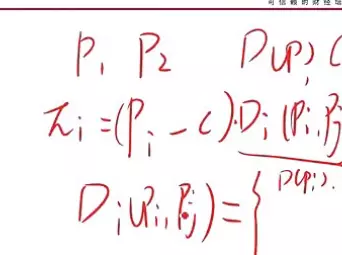 可信赖的财经培
P₁ P₂ D(P) (
π_i = (P_i - c)·D_i(P_i, P_j
D(P_i).
D_i(P_i, P_j) = {